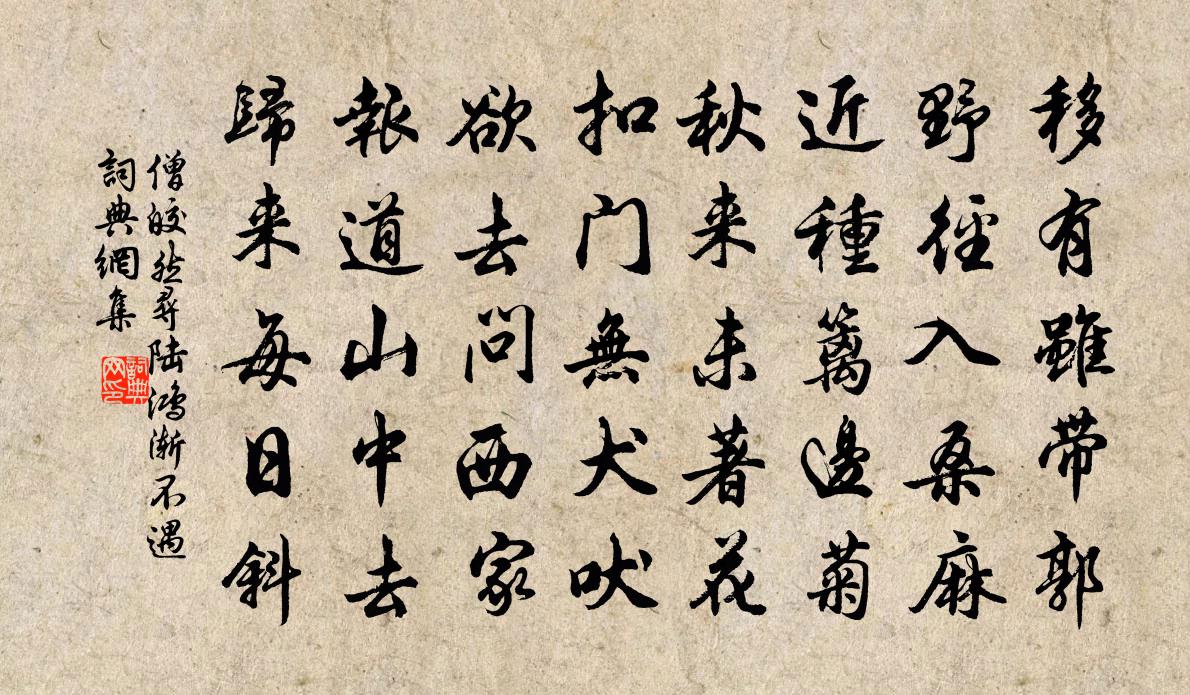 移有雖带郭
野徑入桑麻
近種籬邊菊
秋来未著花
扣门無犬吠
欲去问西家
報道山中去
歸来每日斜
僧皎然尋陸鴻漸不遇
詞典網集
詞典网印